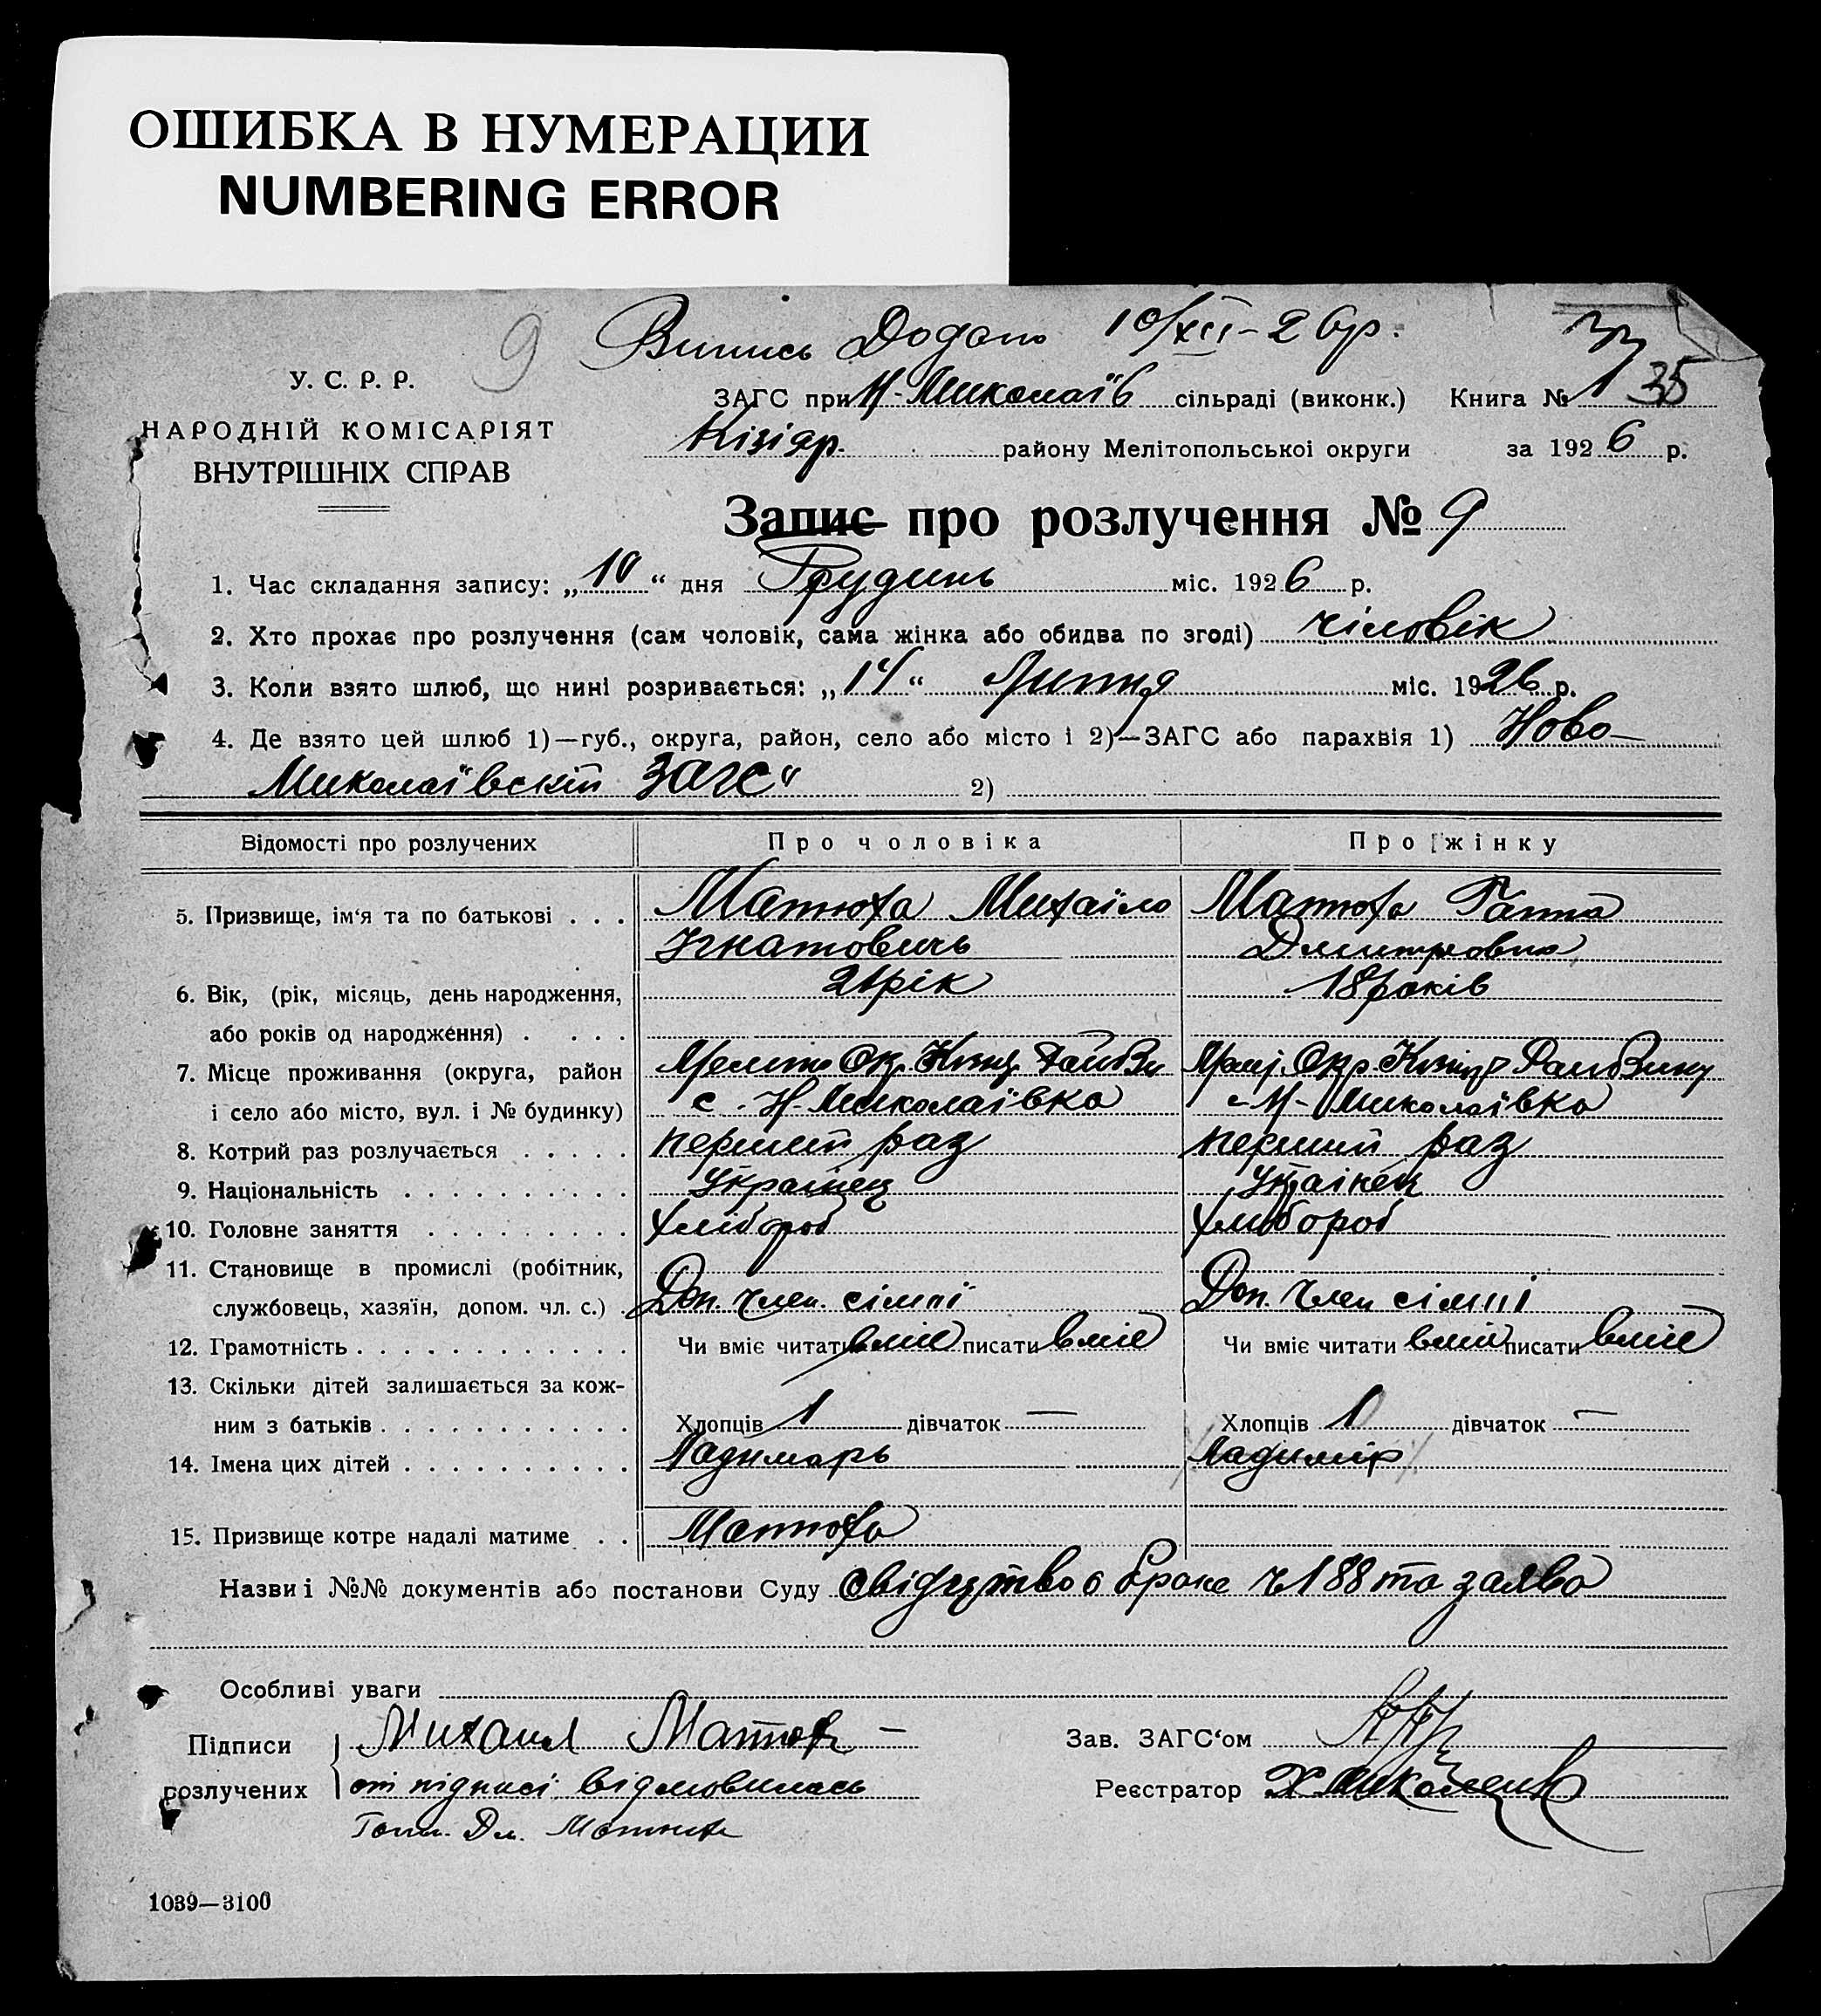 ОШИБКА В НУМЕРАЦИИ
NUMBERING ERROR
9 Випись Додано 10/XII-26р.
У. С. Р. Р.
НАРОДНІЙ КОМІСАРІЯТ
ВНУТРІШНІХ СПРАВ
ЗАГС при Н-Миколаїв сільраді (виконк.) Книга № 1 35
Кізіяр. району Мелітопольської округи за 1926 р.
Запис про розлучення № 9
1. Час складання запису: „10“ дня Грудень міс. 1926 р.
2. Хто прохає про розлучення (сам чоловік, сама жінка або обидва по згоді) чіловік
3. Коли взято шлюб, що нині розривається: „14“ Липня міс. 1926 р.
4. Де взято цей шлюб 1)—губ., округа, район, село або місто і 2)—ЗАГС або парахвія 1) Ново-
Миколаївскій ЗАГС 2)
Відомості про розлучених Про чоловіка Про жінку
5. Призвище, ім‘я та по батькові . . . Матюха Михаіло Матюха Ганна
Ігнатовичь Дмитровна
6. Вік, (рік, місяць, день народження, 21 рік 18 років
або років од народження) . . . .
7. Місце проживання (округа, район Мелито Окр. Кізіяр
і село або місто, вул. і № будинку) с. Н-Миколаївка с Н-Миколаївка
8. Котрий раз розлучається . . . . . перший раз перший раз
9. Національність . . . . . . . . . . Українец Українец
10. Головне заняття . . . . . . . . . Хлібороб Хлібороб
11. Становище в промислі (робітник,
службовець, хазяїн, допом. чл. с.) . Доп. член. сімпі Доп. член сімпі
12. Грамотність . . . . . . . . . . . . Чи вміє читати вміє писати вміє Чи вміє читати вміє писати вміє
13. Скільки дітей залишається за кож-
ним з батьків . . . . . . . . . . . Хлопців 1 дівчаток — Хлопців 1 дівчаток —
14. Імена цих дітей . . . . . . . . . . Ладимарь Ладимір
15. Призвище котре надалі матиме . . Матюха
Назви і №№ документів або постанови Суду Свідуцтво о браке ч 188 та заява
Особливі уваги
Підписи Михаил Матюха — Зав. ЗАГС‘ом
розлучених от підписі відмовилась Реєстратор
Ганн. Дм. Матюха
1039—3100